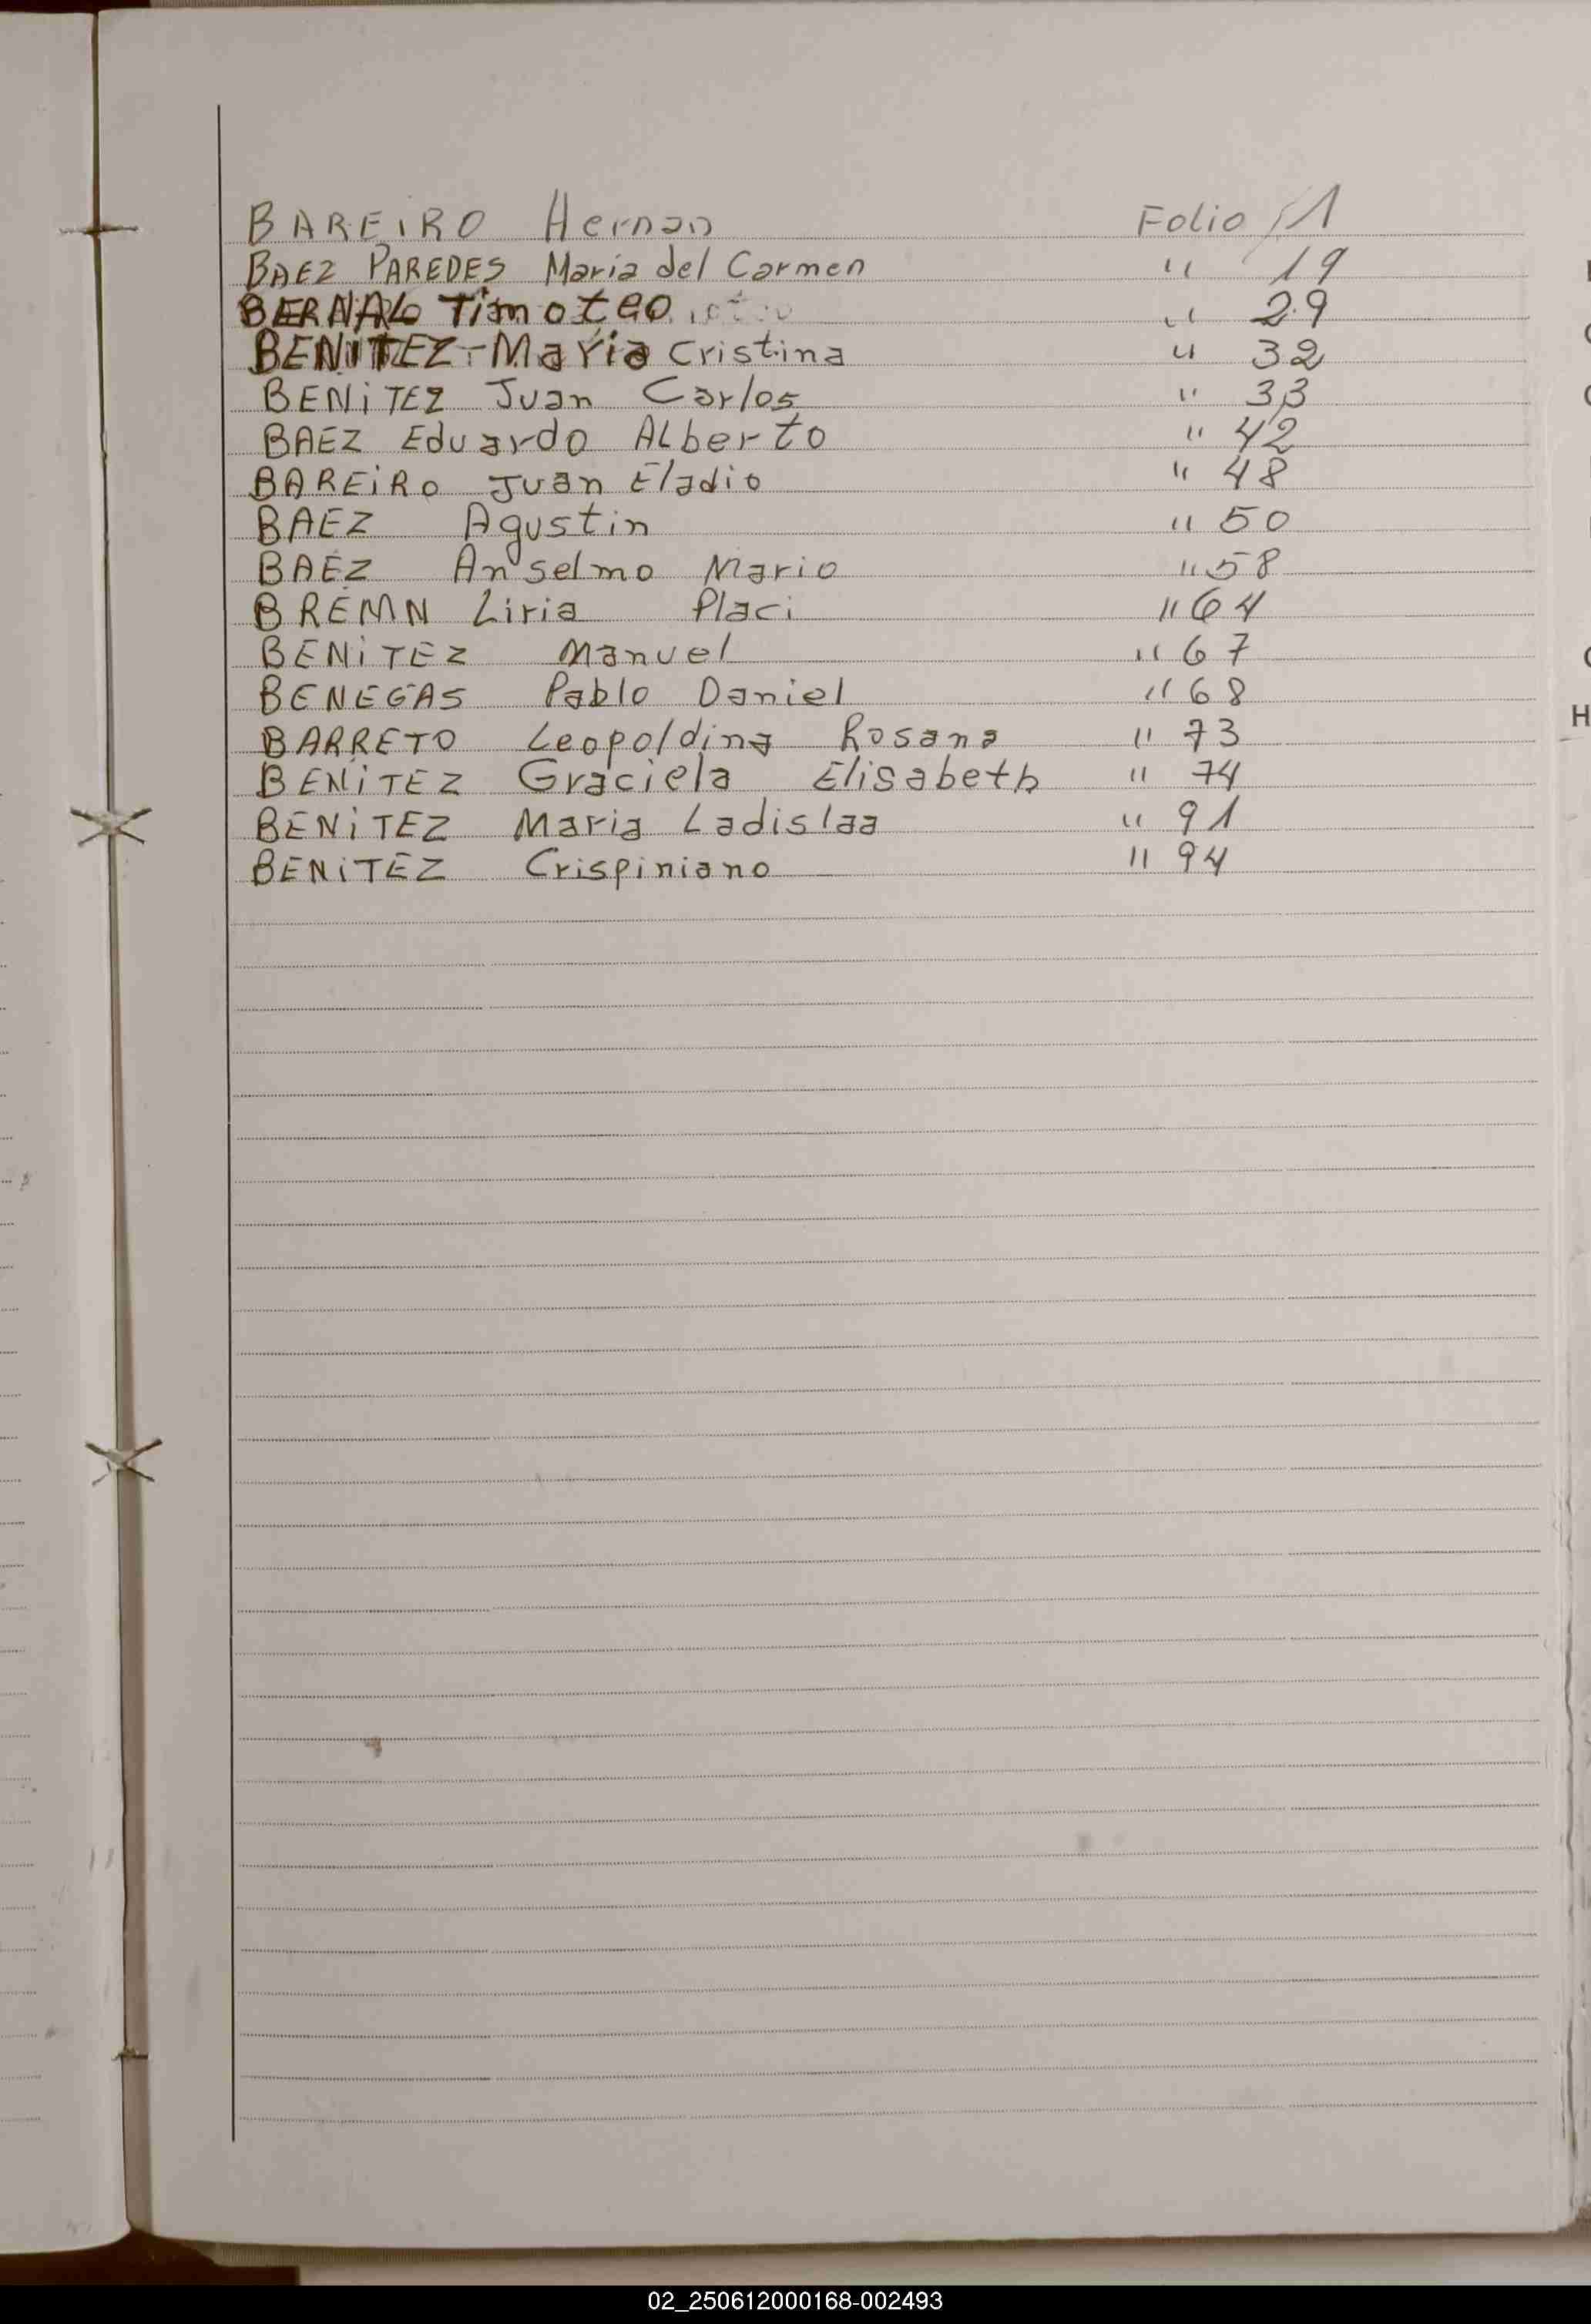 BAREIRO Hernan Folio 11
BAEZ PAREDES Maria del Carmen " 19
BERNAL Timoteo " 29
BENITEZ - Maria Cristina " 32
BENITEZ Juan Carlos " 33
BAEZ Eduardo ALberto " 42
BAREIRO Juan Eladio " 48
BAEZ Agustin " 50
BAEZ Anselmo Mario " 58
BREMN Liria Placi " 64
BENITEZ Manuel " 67
BENEGAS Pablo Daniel " 68
BARRETO Leopoldina Rosana " 73
BENITEZ Graciela Elisabeth " 74
BENITEZ Maria Ladislaa " 91
BENITEZ Crispiniano " 94
H
02_250612000168-002493